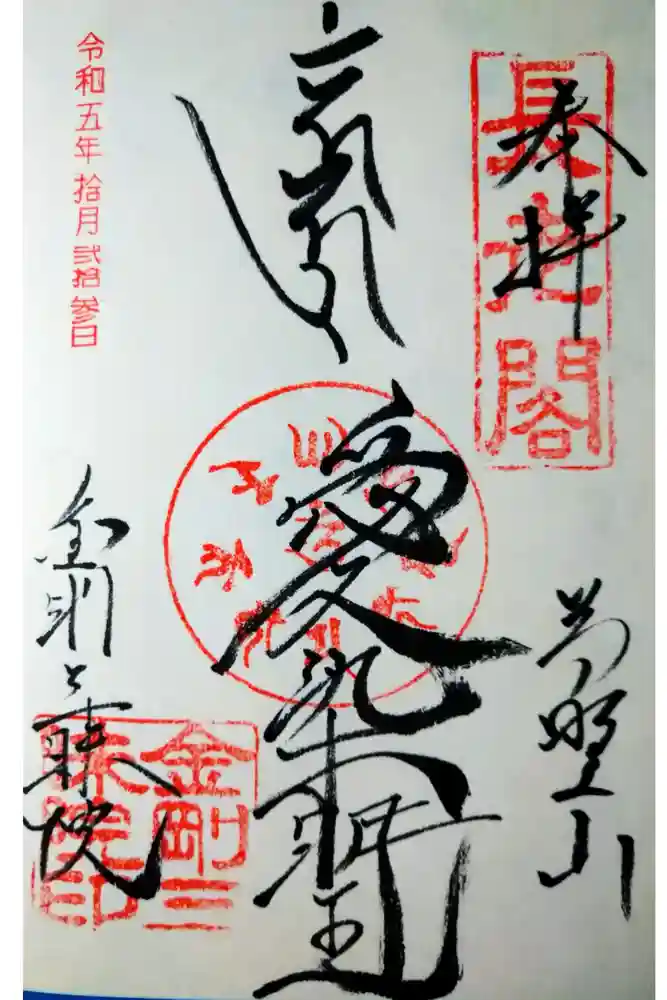 奉拝
長老閣
高野山
愛染明王
令和五年拾月弐拾参日
金剛三昧院
金剛三
昧院印